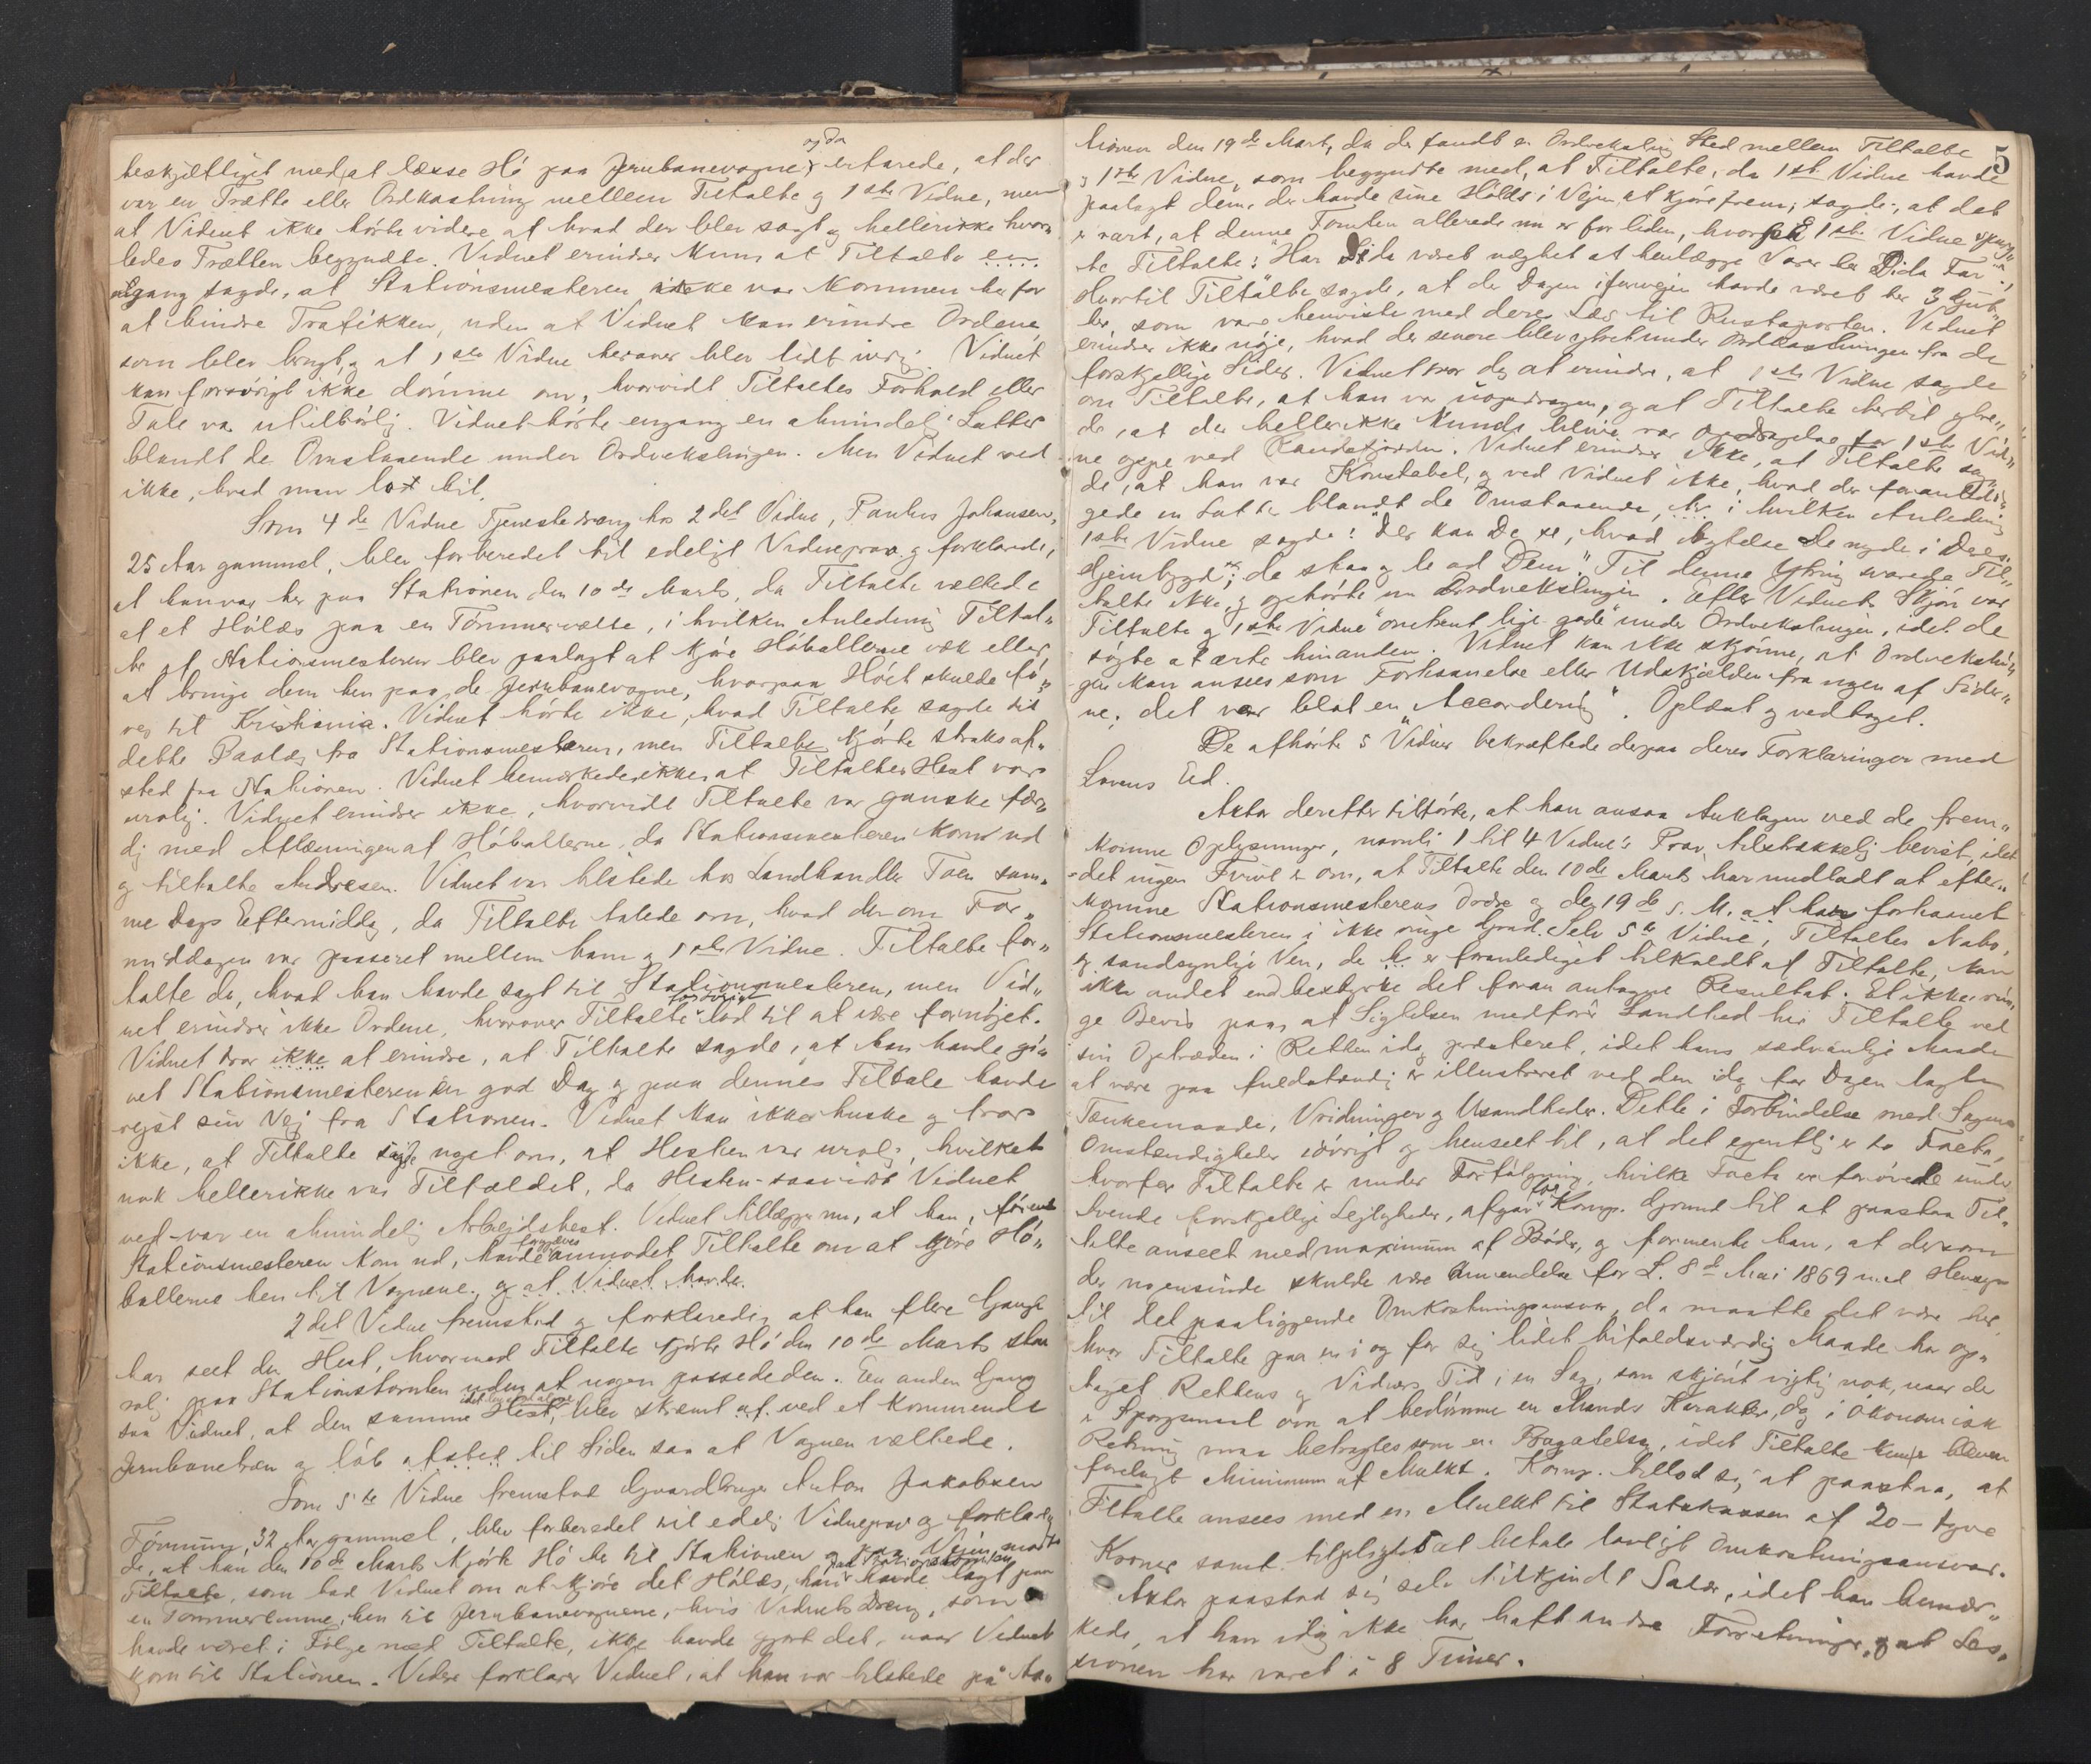 og da
beskjæftiget med, at læsse Hö paa Jernbanevogne, erfarede, at der
var en Trætte eller Ordkastning mellem Tiltalte og 1ste Vidne, men
at Vidnet ikke hörte videre af hvad der blev sagt og hellerikke hvor„
ledes Trætten begyndte. Vidnet erindrer kun at Tiltalte en
gang sagde, at Stationsmesteren ikke var kommen her for
at hindre Trafikken, uden at Vidnet kan erindre Ordene,
som blev brugt, og at 1ste Vidne herover blev lidt ivrig. Vidnet
kan forövrigt ikke dömme om, hvorvidt Tiltaltes Forhold eller
Tale var utilbörlig. Vidnet hörte engang en almindelig Latter
blandt de Omstaaende under Ordvekslingen. Men Vidnet ved
ikke, hvad man lo til.
Som 4de Vidne Tjenestedreng hos 2det Vidne, Paulus Johansen,
25 Aar gammel, blev forberedet til edeligt Vidneprov og forklarede,
at han var her paa Stationen den 10de Marts, da Tiltalte væltede
af et Hölæs paa en Tömmervælte, i hvilken Anledning Tiltal„
te af Stationsmesteren blev paalagt at kjöre Höballerne væk eller
at bringe dem hen paa de Jernbanevogne, hvorpaa Höet skulde fö„
res til Kristiania. Vidnet hörte ikke, hvad Tiltalte sagde til
dette Paalæg fra Stationsmesteren, men Tiltalte kjörte straks af„
sted fra Stationen. Vidnet bemærkede ikke, at Tiltaltes Hest var
urolig. Vidnet erindrer ikke, hvorvidt Tiltalte var ganske fær„
dig med Aflæsningen af Höballerne, da Stationsmesteren kom ud
og tiltalte Andresen. Vidnet var tilstede hos Landhandler Toen sam„
me Dags Eftermiddag, da Tiltalte talte om, hvad der om For„
middagen var passeret mellem ham og 1ste Vidne. Tiltalte for„
talte da, hvad han havde sagt til Stationsmesteren, men Vid„
forövrigt
net erindrer ikke Ordene, hvorover Tiltalte lod til at være fornöjet.
Vidnet tror ikke at erindre, at Tiltalte sagde, at han havde gi„
vet Stationsmesteren en god Dag og paa dennes Tiltale havde
rejst sin Vej fra Stationen. Vidnet kan ikke huske og tror
ikke, at Tiltalte sagde noget om, at Hesten var urolig, hvilket
nok hellerikke var Tilfældet, da Hesten - saavidt Vidnet
ved - var en almindelig Arbejdshest. Vidnet tillægger nu, at han, förend
forgjæves
Stationsmesteren kom ud, havde anmodet Tiltalte om at kjöre Hö„
ballerne hen til Vognene, og at Vidnet havde.
2det Vidne fremstod og forklarede, at han flere Gange
har seet den Hest, hvormed Tiltalte kjörte Hö den 10de Marts staa
rolig paa Stationstomten uden at nogen passede den. En anden Gang
saa Vidnet, at den samme Hest, blev skræmt af ved et kommende
Jernbanetræn og löb afsted til Siden saa at Vognen væltede.
Som 5te Vidne fremstod Gaardbruger Anton Jakobsen
32 Aar gammel, blev forberedet til edelig Vidneprov og forklare„
de, at han den 10de Marts kjörte Hö her til Stationen og paa Vejen mödte
paa Stationstomten
Tiltalte, som bad Vidnet om at kjöre det Hölæs, han havde lagt paa
en Tömmertomme, hen til Jernbanevognene, hvis Vidnets Dreng, som
havde været i Fölge med Tiltalte, ikke havde gjort det, naar Vidnet
kom til Stationen. Videre forklarer Vidnet, at han var tilstede paa Sta„
5
tionen den 19de Mart, da der fandt en Ordveksling Sted mellem Tiltalte
og 1ste Vidne, som begyndte med, at Tiltalte, da 1ste Vidne havde
paalagt dem, der havde sine Hölæs i Vejen, at kjöre frem, sagde, at det
er rart, at denne Tomten allerede nu er for liden, hvorpaa 1ste Vidne spurg„
te Tiltalte: "Har Dida været nægtet at henlægge Varer her Dida Far",
Hvortil Tiltalte sagde, at der Dagen iforvejen havde været her 3 Gut„
ter, som vare henviste med deres Læs til Rustaporten. Vidnet
erindrer ikke nöje, hvad der senere blev ytret under Ordkastningen fra de
forskjellige Sider. Vidnet tror dog at erindre, at 1ste Vidne sagde
om Tiltalte, at han var uopdragen, og at Tiltalte hertil ytre„
de, at der hellerikke kunde blive rar Opdragelse for 1ste Vid„
ne oppe ved Randsfjorden. Vidnet erindrer ikke, at Tiltalte sag„
de, at han var Konstabel, og ved Vidnet ikke, hvad der foranledi„
gede en Latter blandt de Omstaaende, i hvilken Anledning
1ste Vidne sagde: "Der kan De se, hvad Agtelse De nyde i Deres
Hjembygd; de staa og le ad Dem". Til denne Ytring svarede Til„
talte ikke, og ophörte nu Ordvekslingen. Efter Vidnets Skjön var
Tiltalte og 1ste Vidne "omtrent lige gode" under Ordvekslingen, idet de
sögte at ærte hinanden. Vidnet kan ikke skjönne, at Ordvekslin„
gen kan ansees som Forhaanelse eller Udskjælden fra nogen af Sider„
ne; det var blot en "Accordering". Oplæst og vedtaget.
De afhörte 5 Vidner bekræftede derpaa deres Forklaringer med
Lovens Ed.
Aktor derefter tilförte, at han ansaa Anklagen ved de frem„
komne Oplysninger, navnlig 1 til 4 Vidnes Prov, tilstrækkelig bevist, idet
det ingen Tvivl er om, at Tiltalte den 10de Marts har undladt at efter„
komme Stationsmesterens Ordre og den 19de s. M. at have forhaanet
Stationsmesteren i ikke ringe Grad. Selv 5te Vidne, Tiltaltes Nabo,
og sandsynlige Ven, der er foranlediget tilkaldt af Tiltalte, kan
ikke andet end bestyrke det foran antagne Resultat. Et ikke rin„
ge Bevis paa, at Sigtelsen medförer Sandhed har Tiltalte ved
sin Optræden i Retten idag præsteret, idet hans sædvanlige Maade
at være paa fuldstændig er illustreret ved den idag for Dagen lagte
Tænkemaade, Vridninger og Usandheder. Dette i Forbindelse med Sagens
Omstændigheder iövrigt og henseet til, at det egentlig er to Facta,
hvorfor Tiltalte er under Forfölgning, hvilke Facta ere forövede under
for
tvende forskjellige Lejligheder, afgav Komp. Grund til at paastaa Til„
talte anseet med maximum af Böder, og formente han, at dersom
der nogensinde skulde være Anvendelse for L. 8de Mai 1869 med Hensyn
til det paaliggende Omkostningsansvar, da maatte det være her,
hvor Tiltalte paa en i og for sig lidet bifaldsværdig Maade har op„
taget Rettens og Vidners Tid i en Sag, som skjönt vigtig nok, naar der
er Spörgsmaal om at bedömme en Mands Karakter, dog i ökonomisk
Retning maa betragtes som en Bagatelsag, idet Tiltalte kun er bleven
forelagt Minimum af Mulkt. Komp. tillod sig at paastaa, at
Tiltalte ansees med en Mulkt til Statskassen af 20 - tyve
Kroner samt tilpligtet at betale lovligt Omkostningsansvar.
Aktor paastod sig selv tilkjendt Salær, idet han bemær„
kede, at han idag ikke har haft andre Forretninger, og at Ses„
sionen har varet i 8 Timer.